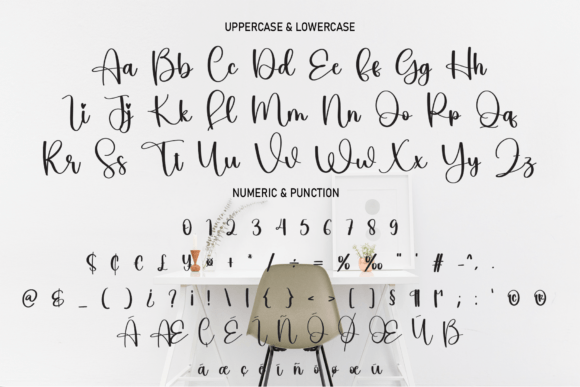 UPPERCASE & LOWERCASE
Aa Bb Cc Dd Ee Ff Gg Hh
Ii Jj Kk Ll Mm Nn Oo Pp Qq
Rr Ss Tt Uu Vv Ww Xx Yy Zz
NUMERIC & PUNCTION
0 1 2 3 4 5 6 7 8 9
$ ¢ € £ ¥ ø + * / ÷ = % ‰ " ' # - ^ , .
@ & _ ( ) ¿ ? ¡ ! \ | { } < > [ ] § ¶ ; : ' © ®
Á Æ Ç É Í Ñ Ó Ø Œ Ú ß
á æ ç é í ñ ó ø œ ú